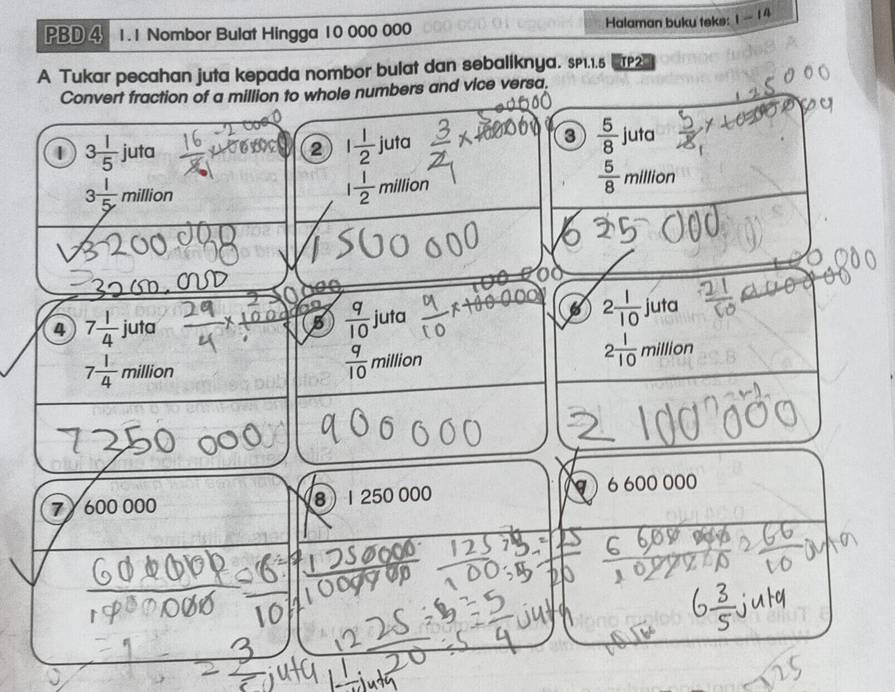 PBD 4 1.1 Nombor Bulat Hingga 10 000 000
Halaman buku teks: 1 – 14
A Tukar pecahan juta kepada nombor bulat dan sebaliknya. SP1.1.5 TP2
Convert fraction of a million to whole numbers and vice versa.
1 3 1/5 juta 16/5
3 1/5 million
3200 000
3200.000
2 1 1/2 juta 3/2 ×
1 1/2 million
1 500 000
3 5/8 juta 5/8 × 125000
5/8 million
625 000
4 7 1/4 juta 29/4 × 250000
7 1/4 million
7250 000
5 9/10 juta 9/10 × 100 000
9/10 million
900 000
6 2 1/10 juta 21/10 100 000
2 1/10 million
2 100 000
7 600 000
600000/1000000 = 6/10
= 3/5 juta
8 1 250 000
1250000/1000000 125/100 ÷5 ÷5 = 25/20
25/20 ÷5 ÷5 = 5/4 juta
1 1/4 juta
9 6 600 000
6 600 000/1000000 = 66/10 juta
6 3/5 juta